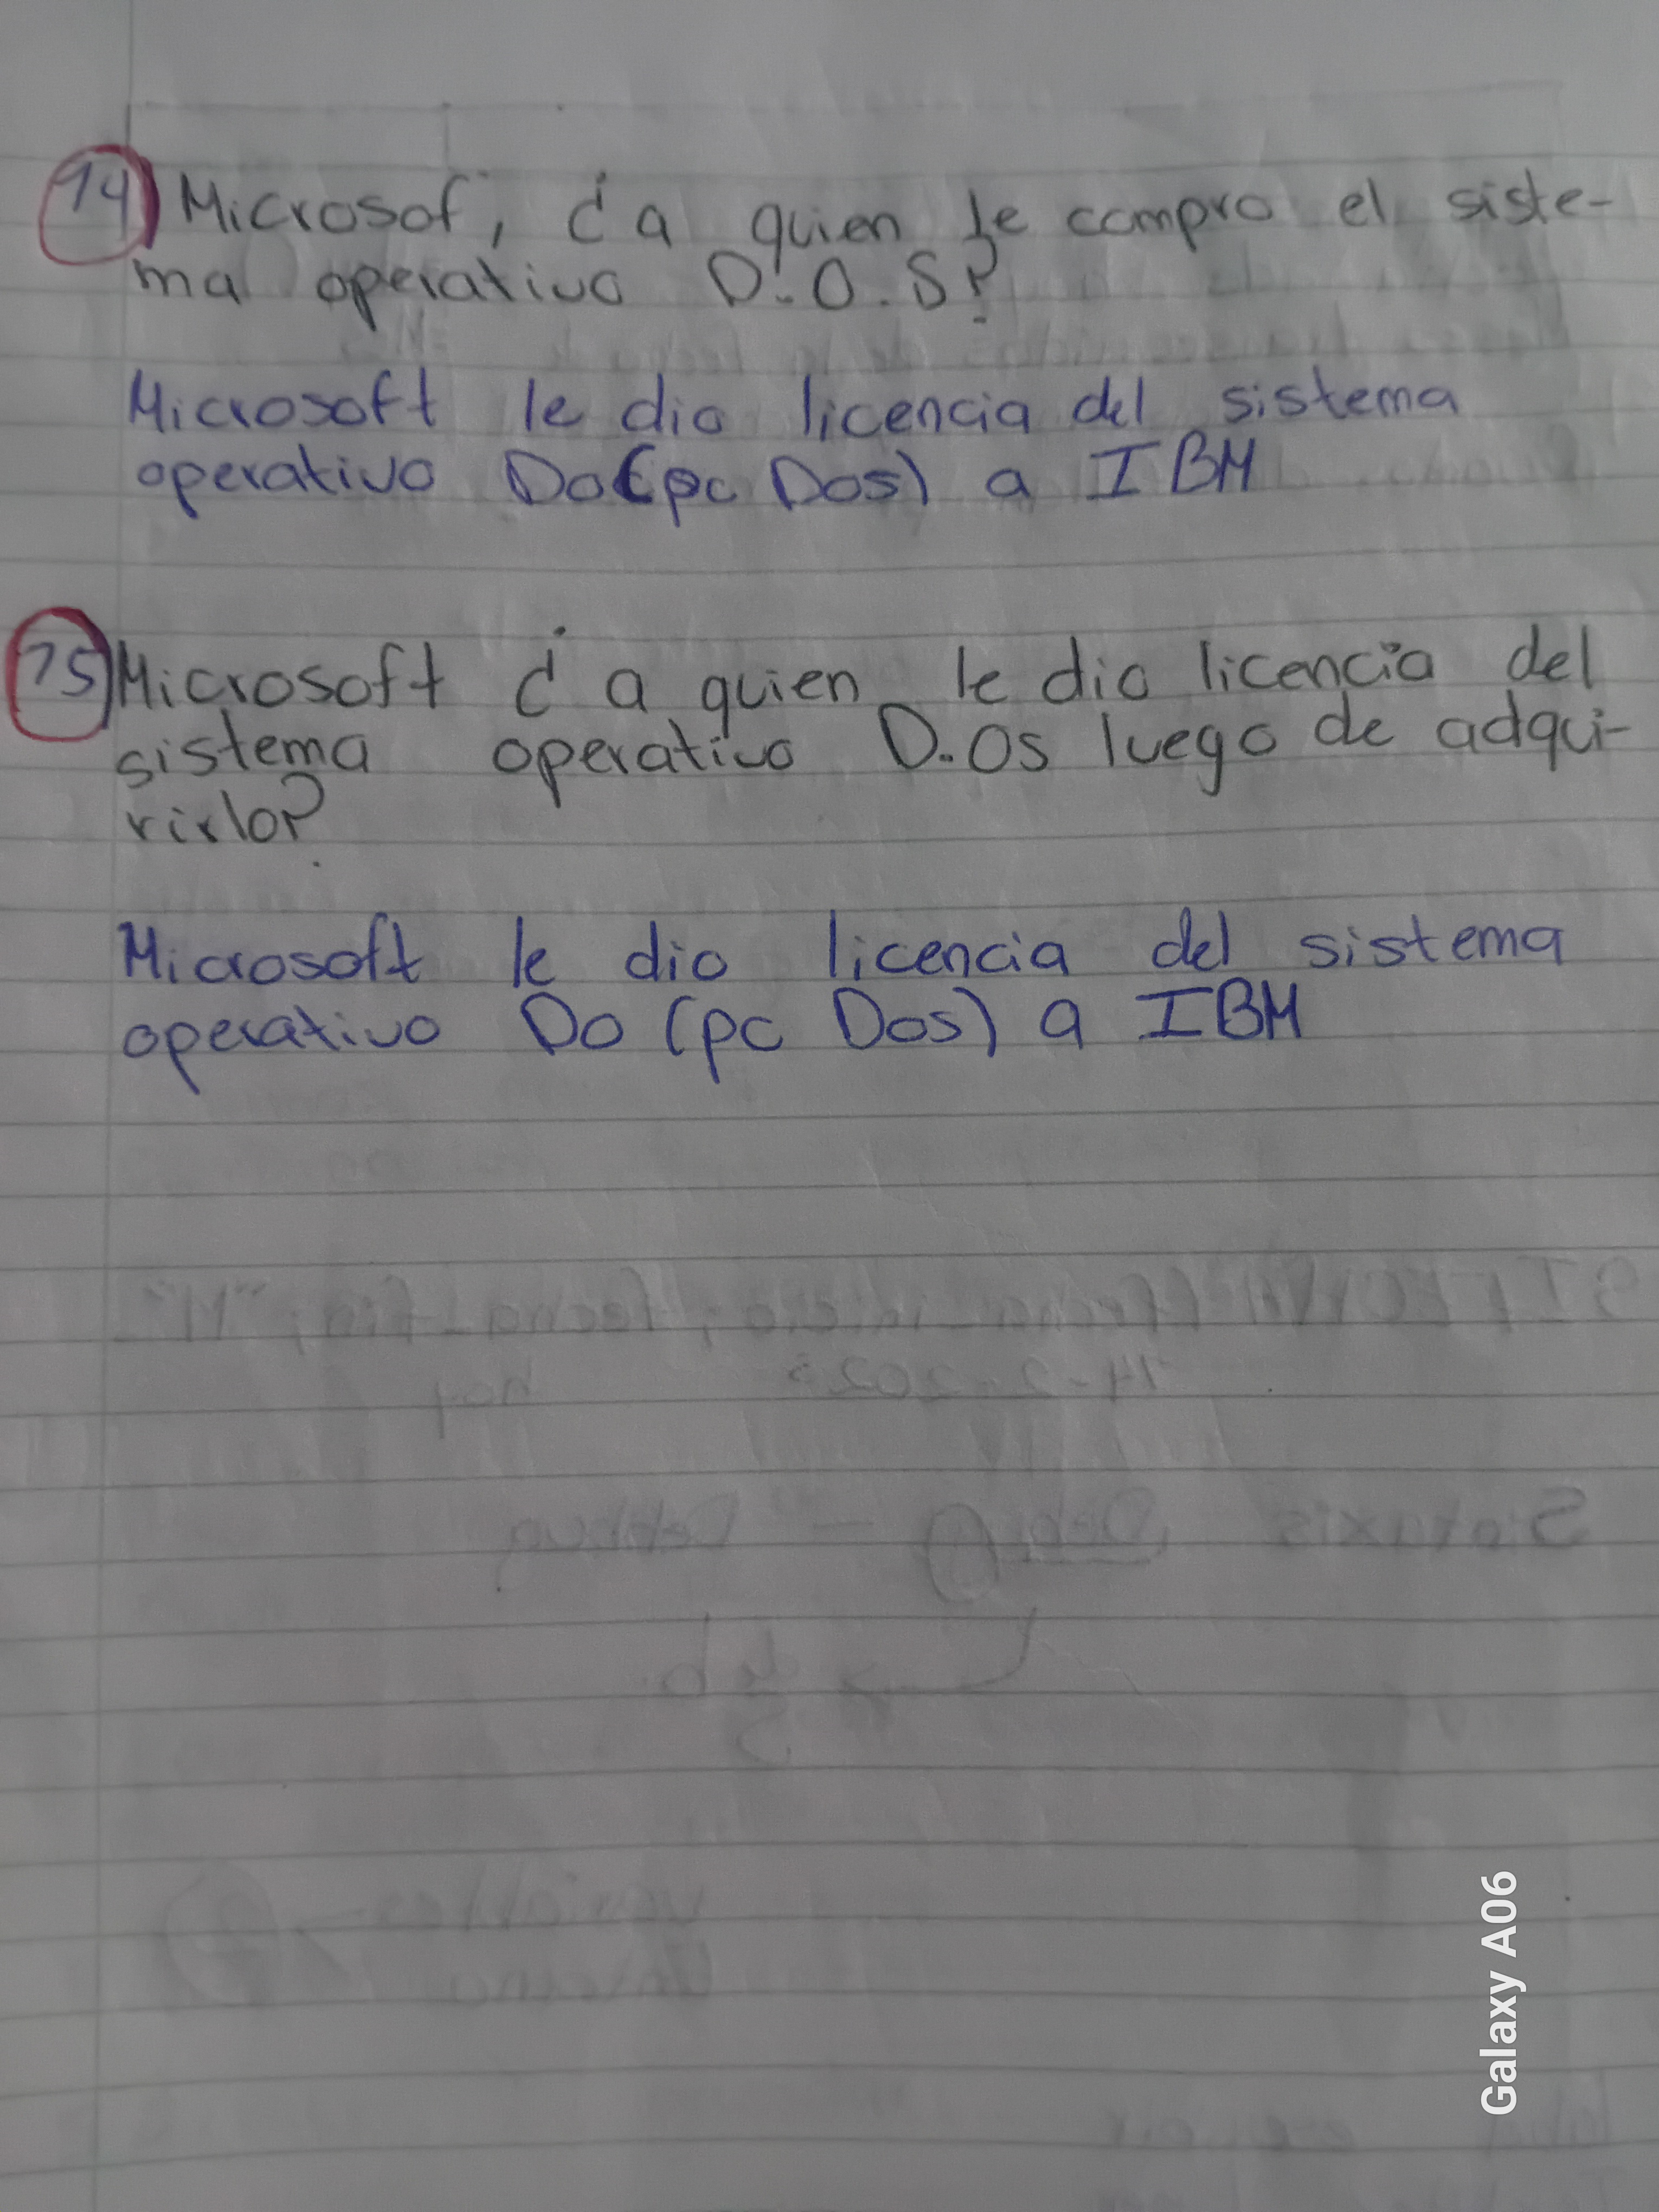 14) Microsof, ¿a quien le compro el siste-
ma operativo D.O.S?
Microsoft le dio licencia del sistema
operativo Do(pc Dos) a IBM
15) Microsoft ¿a quien le dio licencia del
sistema operativo D.Os luego de adqui-
rirlo?
Microsoft le dio licencia del sistema
operativo Do (pc Dos) a IBM
Galaxy A06